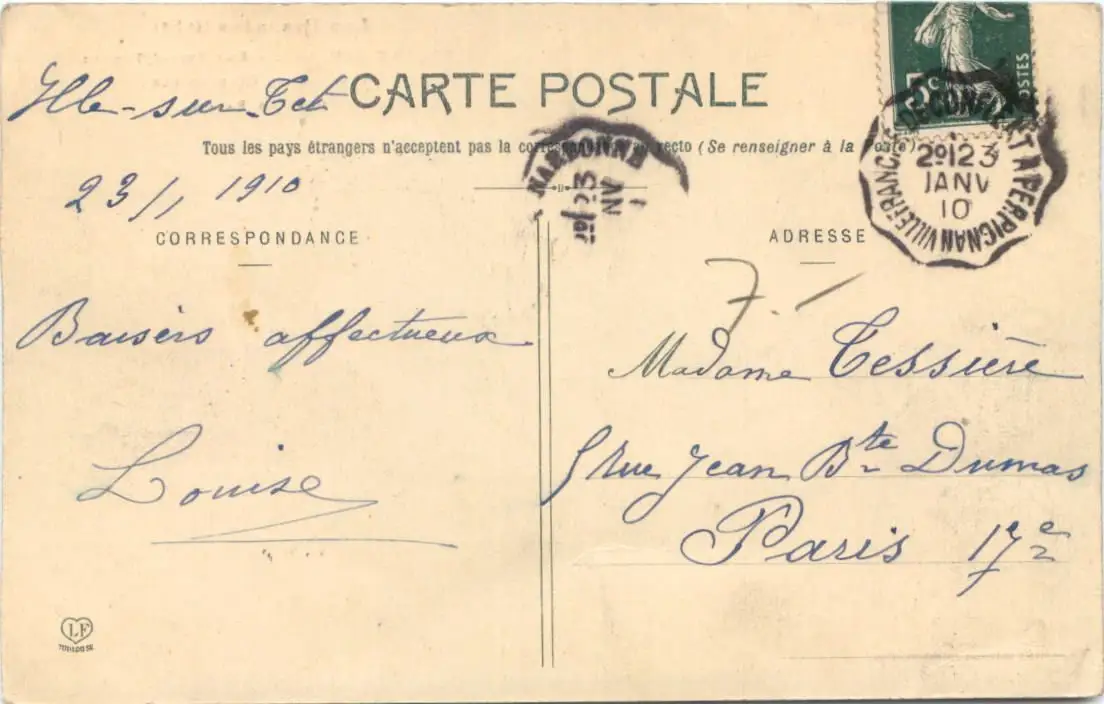 Ille-sur-Tet
CARTE POSTALE
Tous les pays étrangers n'acceptent pas la correspondance au recto (Se renseigner à la Poste)
23/1 1910
CORRESPONDANCE
ADRESSE
5c
POSTES
NARBONNE
VILLEFRANCHE DE CONFLENT A PERPIGNAN
2º 23
JANV
10
Baisers affectueux
Louise
7.
Madame Tessière
5 Rue Jean Bte Dumas
Paris 17e
LF
TOULOUSE